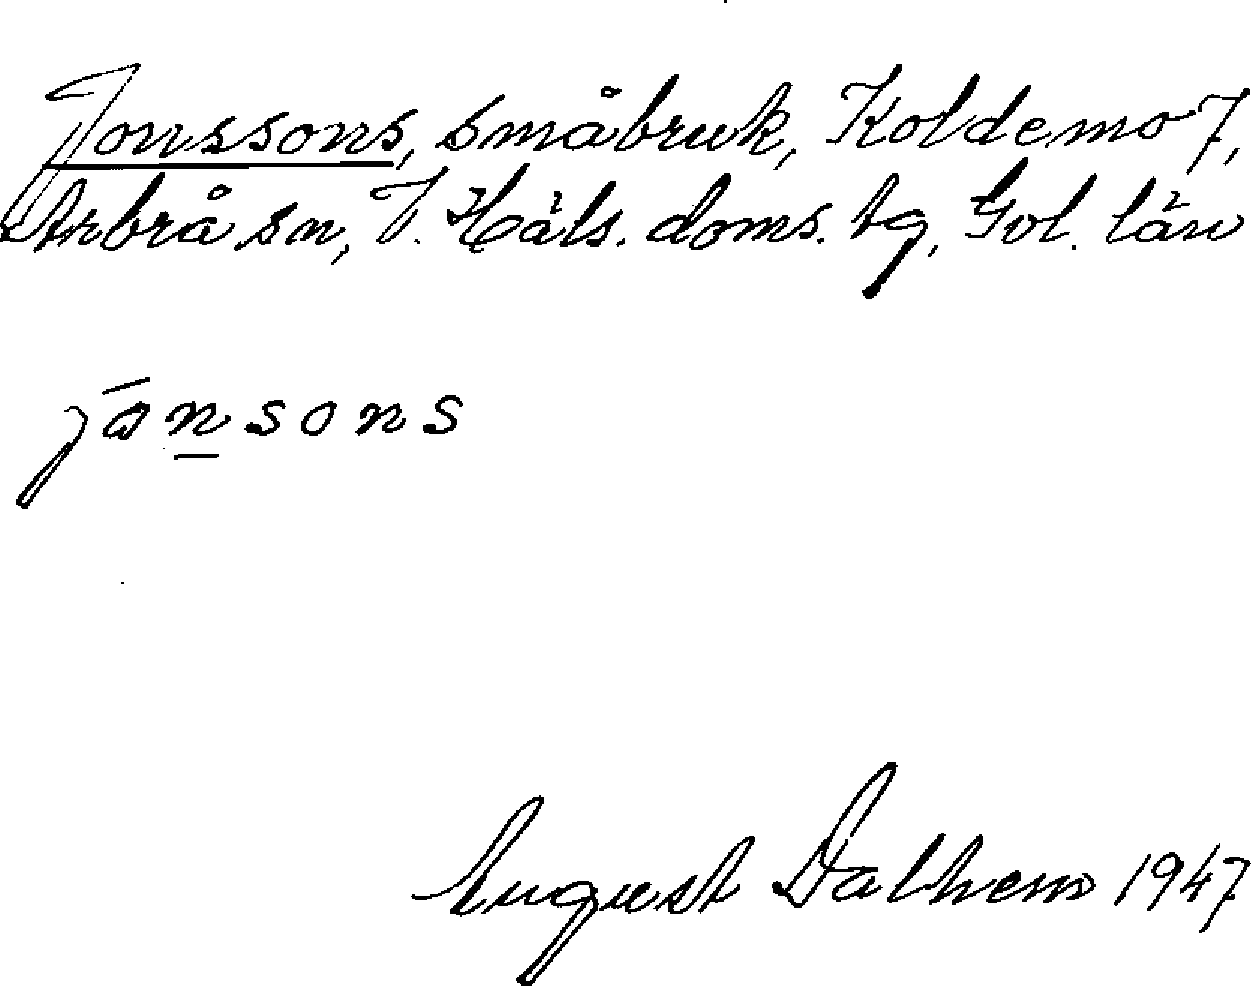 Jonssons, småbruk, Koldemo 7,
Arbrå sn, V. Häls. doms. tg, Gol. län
jōn̲sons
August Dalhem 1947